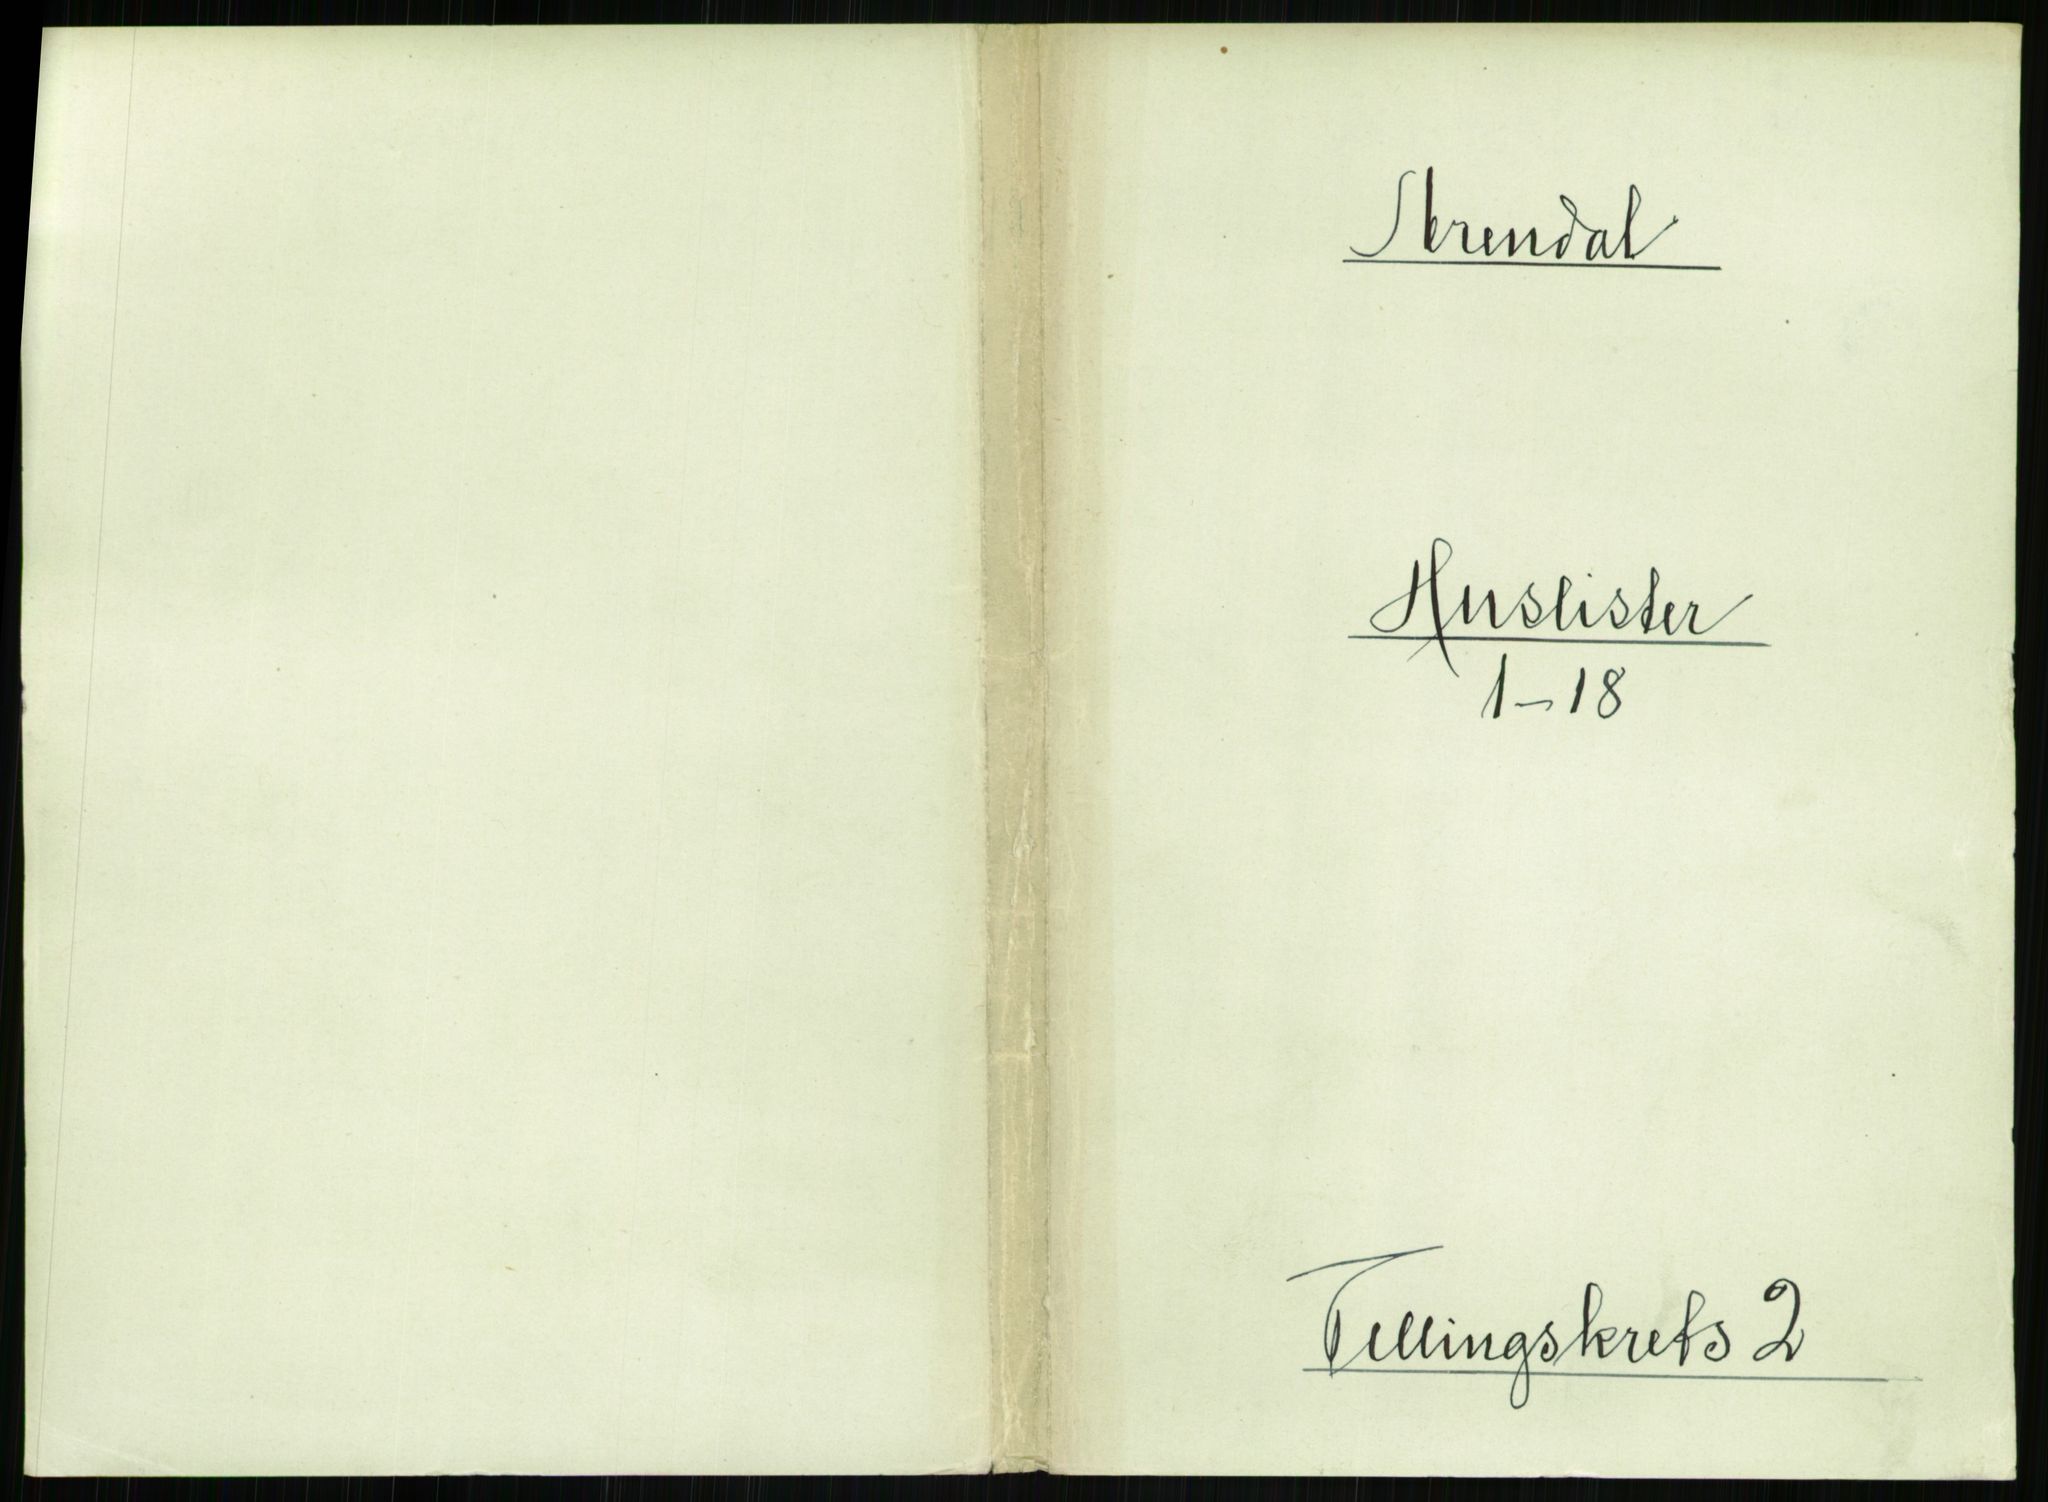 Arendal
Huslister
1-18
Tellingskrets 2